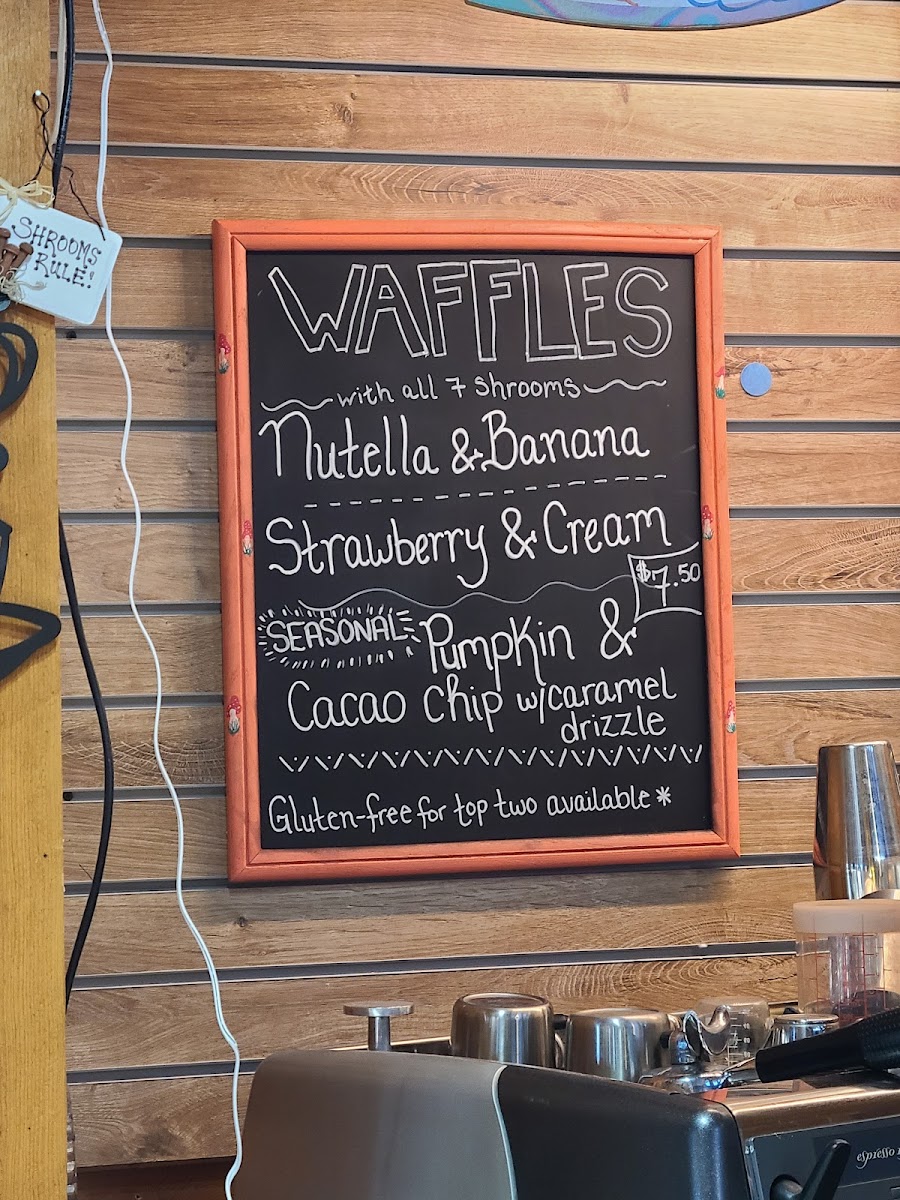 SHROOMS
RULE!
WAFFLES
with all 7 shrooms
Nutella & Banana
Strawberry & Cream
$7.50
SEASONAL Pumpkin &
Cacao chip w/caramel
drizzle
Gluten-free for top two available *
espresso